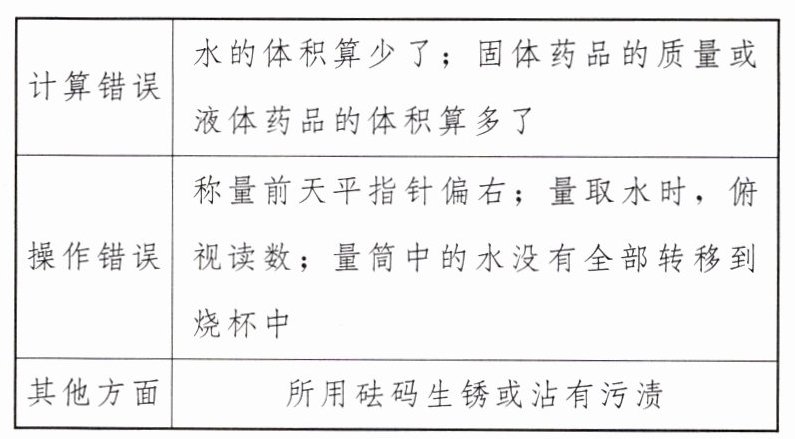 计算错误
水的体积算少了；固体药品的质量或
液体药品的体积算多了
操作错误
称量前天平指针偏右；量取水时，俯
视读数；量筒中的水没有全部转移到
烧杯中
其他方面
所用砝码生锈或沾有污渍